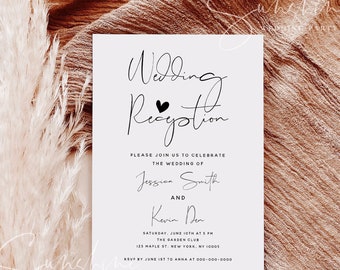 Wedding
Reception
PLEASE JOIN US TO CELEBRATE
THE WEDDING OF
Jessica Smith
AND
Kevin Den
SATURDAY, JUNE 10TH AT 5 PM
THE GARDEN CLUB
123 MAPLE ST. NEW YORK, NY 10000
RSVP BY JUNE 1ST TO ANNA AT 000-000-0000